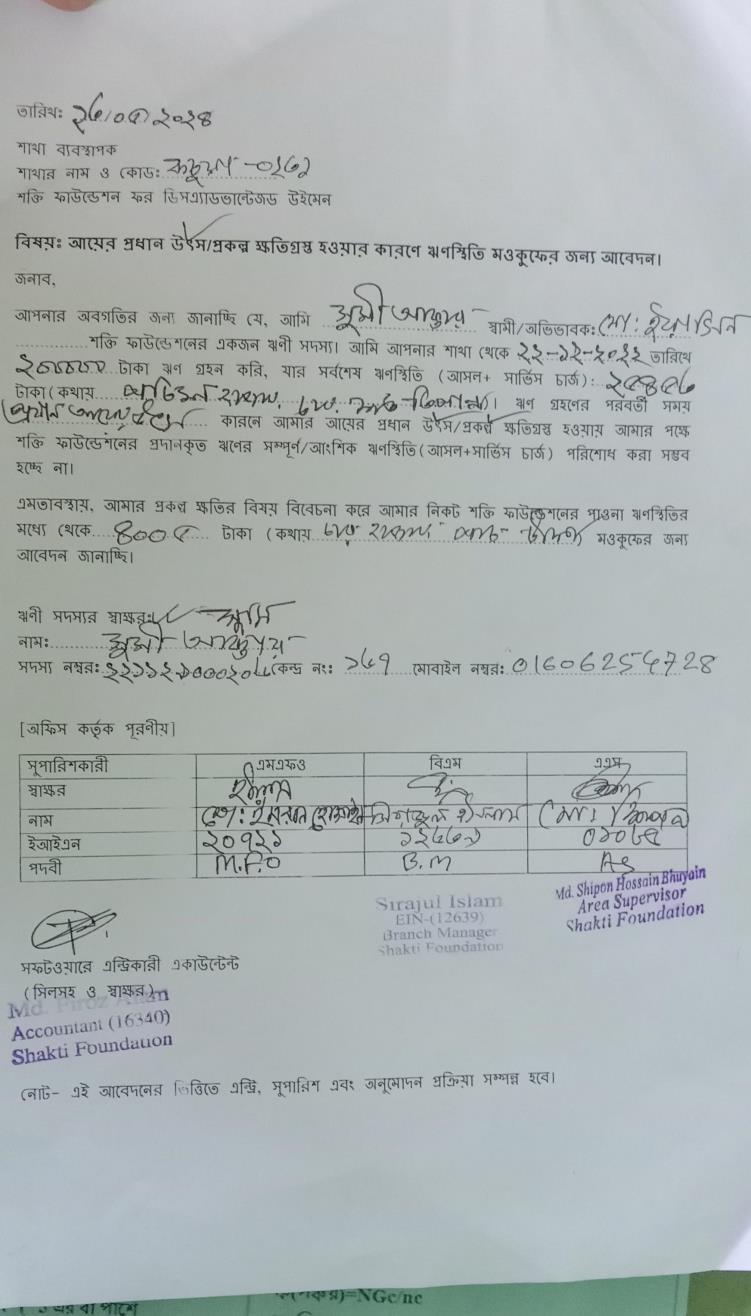 তারিখঃ ২৬/০৫/২০২৪
শাখা ব্যবস্থাপক
শাখার নাম ও কোডঃ
শক্তি ফাউন্ডেশন ফর ডিসএ্যাডভান্টেজড উইমেন
বিষয়ঃ আয়ের প্রধান উৎস/প্রকল্প ক্ষতিগ্রস্ত হওয়ার কারণে ঋণস্থিতি মওকুফের জন্য আবেদন।
জনাব,
আপনার অবগতির জন্য জানাচ্ছি যে, আমি সুমী আক্তার স্বামী/অভিভাবকঃ মোঃ ইয়াসিন
শক্তি ফাউন্ডেশনের একজন ঋণী সদস্য। আমি আপনার শাখা থেকে ২২-১২-২০২২ তারিখে
টাকা ঋণ গ্রহন করি, যার সর্বশেষ ঋণস্থিতি (আসল+ সার্ভিস চার্জ):
টাকা (কথায় ঋণ গ্রহণের পরবর্তী সময়
কারনে আমার আয়ের প্রধান উৎস/প্রকল্প ক্ষতিগ্রস্ত হওয়ায় আমার পক্ষে
শক্তি ফাউন্ডেশনের প্রদানকৃত ঋণের সম্পূর্ণ/আংশিক ঋণস্থিতি(আসল+সার্ভিস চার্জ) পরিশোধ করা সম্ভব
হচ্ছে না।
এমতাবস্থায়, আমার প্রকল্প ক্ষতির বিষয় বিবেচনা করে আমার নিকট শক্তি ফাউন্ডেশনের পাওনা ঋণস্থিতির
মধ্যে থেকে ৪০০৫ টাকা (কথায় মওকুফের জন্য
আবেদন জানাচ্ছি।
ঋণী সদস্যের স্বাক্ষরঃ সুমি
নামঃ সুমী আক্তার
সদস্য নম্বরঃ কেন্দ্র নংঃ ১৬৭ মোবাইল নম্বরঃ 01606254728
[অফিস কর্তৃক পূরণীয়]
সুপারিশকারী এমএফও বিএম এএস
স্বাক্ষর
নাম সিরাজুল ইসলাম
ইআইএন ২০৭২১ ১২৬৩৯
পদবী M.F.O B.M AS
Sirajul Islam
EIN-(12639)
Branch Manager
Shakti Foundation
Md. Shipon Hossain Bhuyain
Area Supervisor
Shakti Foundation
সফটওয়ারে এন্ট্রিকারী একাউন্টেন্ট
(সিলসহ ও স্বাক্ষর)
Md. Firoz Alam
Accountant (16340)
Shakti Foundation
নোট- এই আবেদনের ভিত্তিতে এন্ট্রি, সুপারিশ এবং অনুমোদন প্রক্রিয়া সম্পন্ন হবে।
=NGc/nc